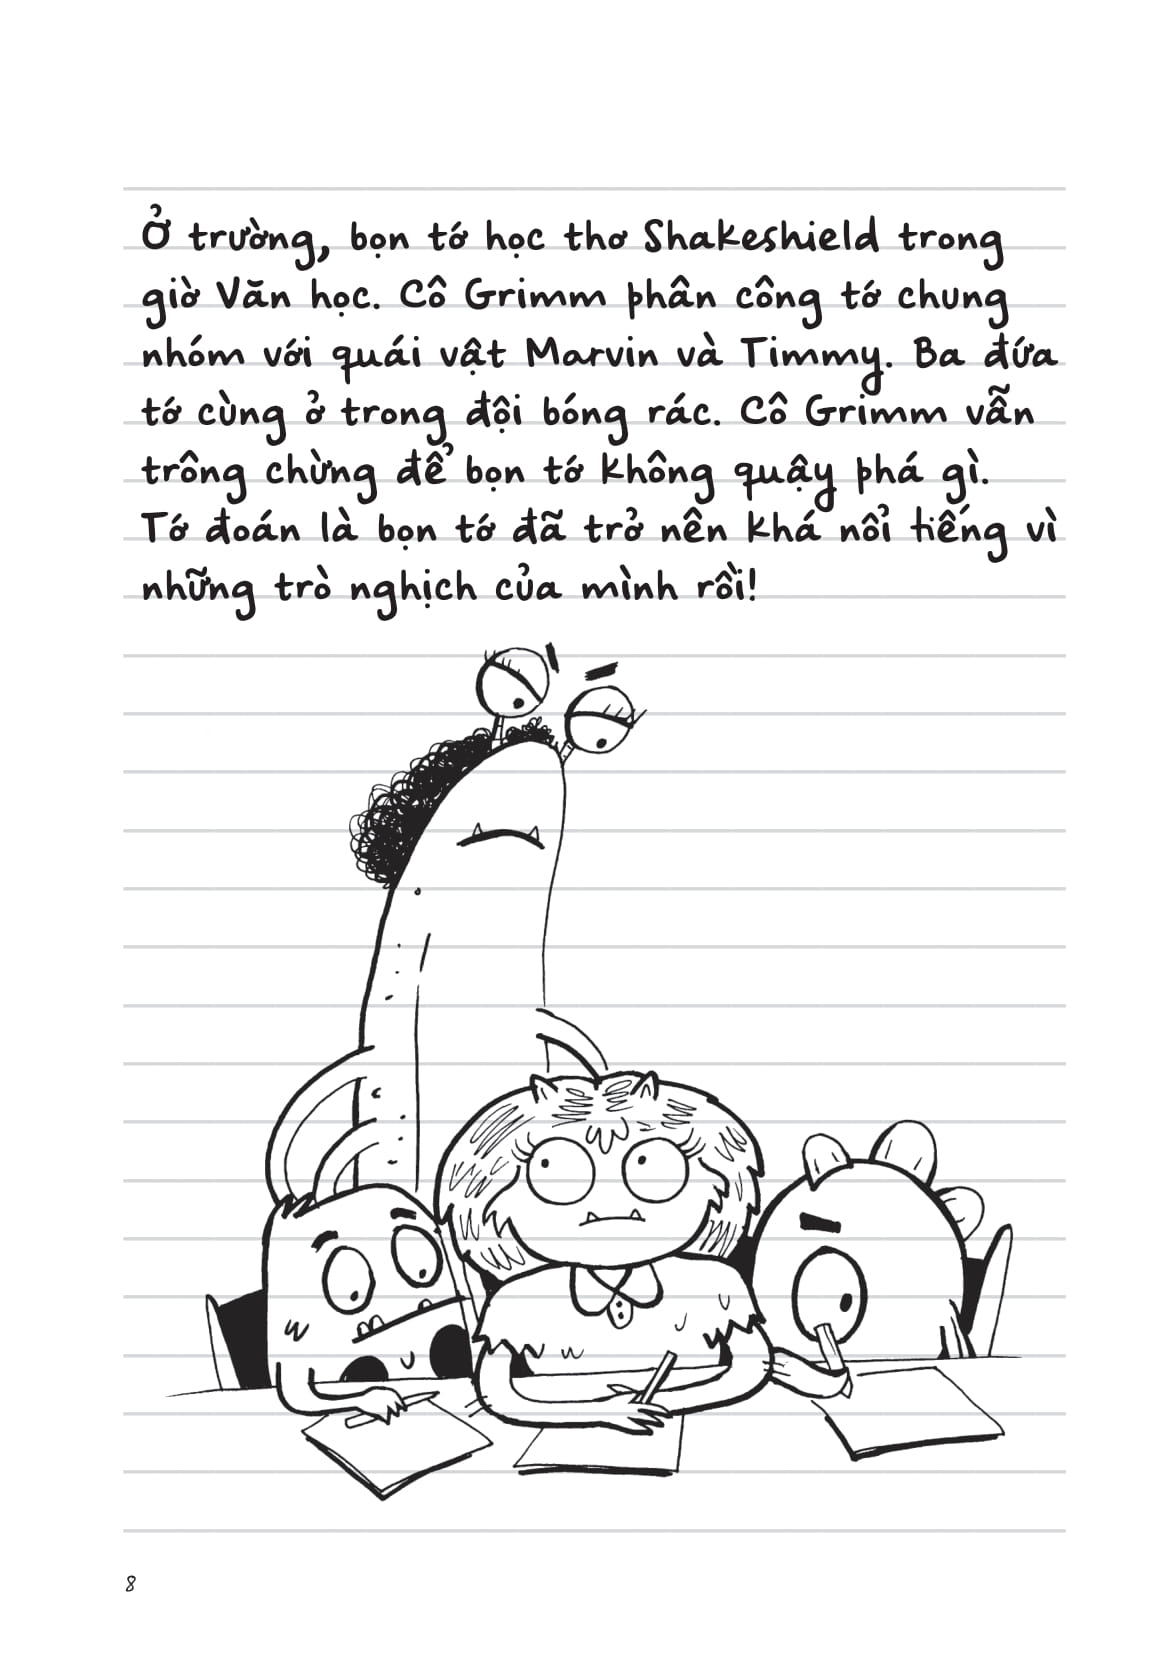 Ở trường, bọn tớ học thơ Shakeshield trong
giờ Văn học. Cô Grimm phân công tớ chung
nhóm với quái vật Marvin và Timmy. Ba đứa
tớ cùng ở trong đội bóng rác. Cô Grimm vẫn
trông chừng để bọn tớ không quậy phá gì.
Tớ đoán là bọn tớ đã trở nên khá nổi tiếng vì
những trò nghịch của mình rồi!
8